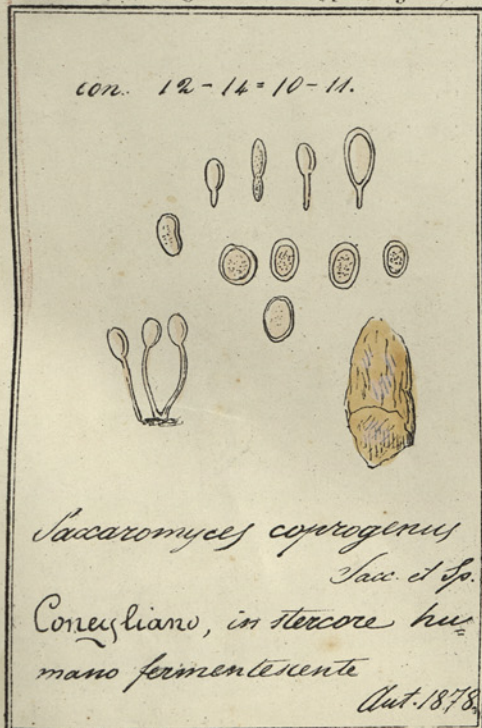 con. 12-14=10-11.
Saccaromyces coprogenus
Sacc. et Sp.
Conegliano, in stercore hu=
mano fermentescente
Aut. 1878.